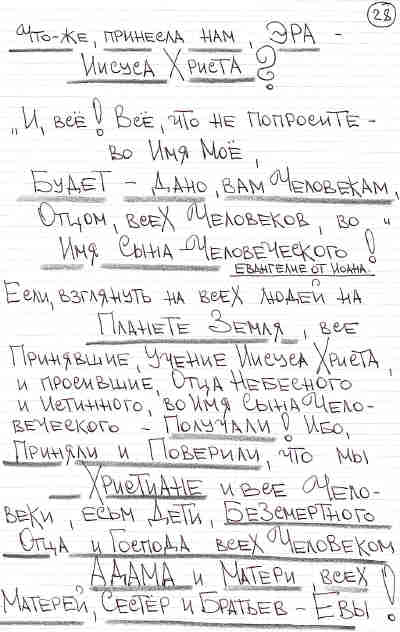 28
Что-же, принесла нам, ЭРА -
Иисуса Христа?
„И, всё! Всё, что не попросите -
во Имя Моё,
Будет - дано, вам Человекам,
Отцом, всех Человеков, во "
Имя Сына Человеческого!
Евангелие от Иоана.
Если, взглянуть на всех людей на
Планете Земля, все
Принявшие, Учение Иисуса Христа,
и просившие, Отца Небесного
и истинного, во Имя Сына Чело-
веческого - Получали! Ибо,
Приняли и Поверили, что мы
Христиане и все Чело-
веки, есьм Дети, Безсмертного
Отца и Господа всех Человеком
Адама и Матери всех
Матерей, Сестёр и Братьев - Евы!